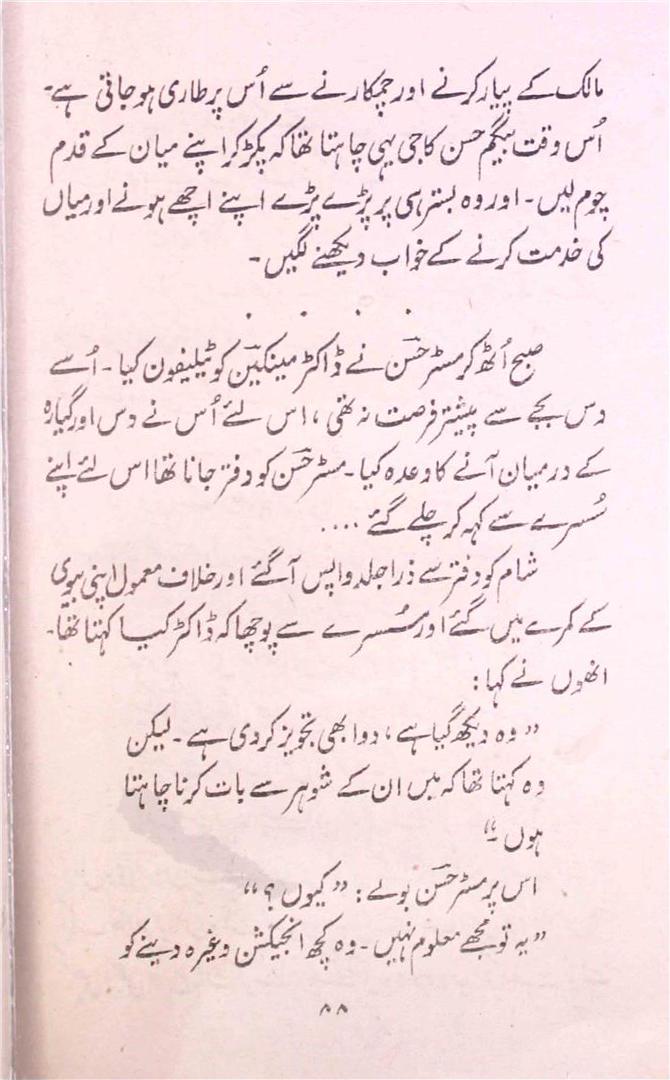 مالک کے پیار کرنے اور چمکارنے سے اُس پر طاری ہو جاتی ہے۔
اُس وقت بیگم حسن کا جی یہی چاہتا تھا کہ پکڑ کر اپنے میان کے قدم
چوم لیں۔ اور وہ بستر ہی پر پڑے پڑے اپنے اچھے ہونے اور میاں
کی خدمت کرنے کے خواب دیکھنے لگیں۔
. . . .
صبح اُٹھ کر مسٹر حسنؔ نے ڈاکٹر مینکینؔ کو ٹیلیفون کیا۔ اُسے
دس بجے سے پیشتر فرصت نہ تھی، اس لئے اُس نے دس اور گیارہ
کے درمیان آنے کا وعدہ کیا۔ مسٹر حسنؔ کو دفتر جانا تھا اس لئے اپنے
سُسرے سے کہہ کر چلے گئے ....
شام کو دفتر سے ذرا جلد واپس آگئے اور خلاف معمول اپنی بیوی
کے کمرے میں گئے اور سُسرے سے پوچھا کہ ڈاکٹر کیا کہتا تھا۔
انھوں نے کہا:
”وہ دیکھ گیا ہے، دوا بھی تجویز کر دی ہے۔ لیکن
وہ کہتا تھا کہ میں ان کے شوہر سے بات کرنا چاہتا
ہوں۔“
اس پر مسٹر حسنؔ بولے: ”کیوں؟“
”یہ تو مجھے معلوم نہیں۔ وہ کچھ انجیکشن وغیرہ دینے کو
۸۸